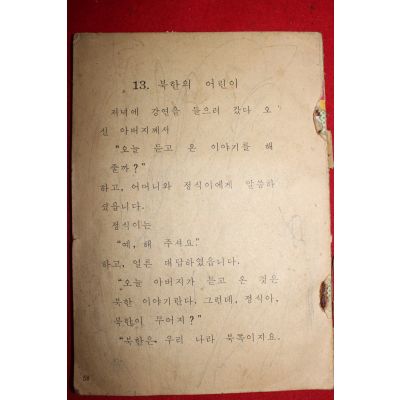 13. 북한의 어린이
저녁에 강연을 들으러 갔다 오
신 아버지께서
"오늘 듣고 온 이야기를 해
줄까?"
하고, 어머니와 정식이에게 말씀하
셨읍니다.
정식이는
"예, 해 주셔요."
하고, 얼른 대답하였읍니다.
"오늘 아버지가 듣고 온 것은
북한 이야기란다. 그런데, 정식아,
북한이 무어지?"
"북한은 우리 나라 북쪽이지요.
58